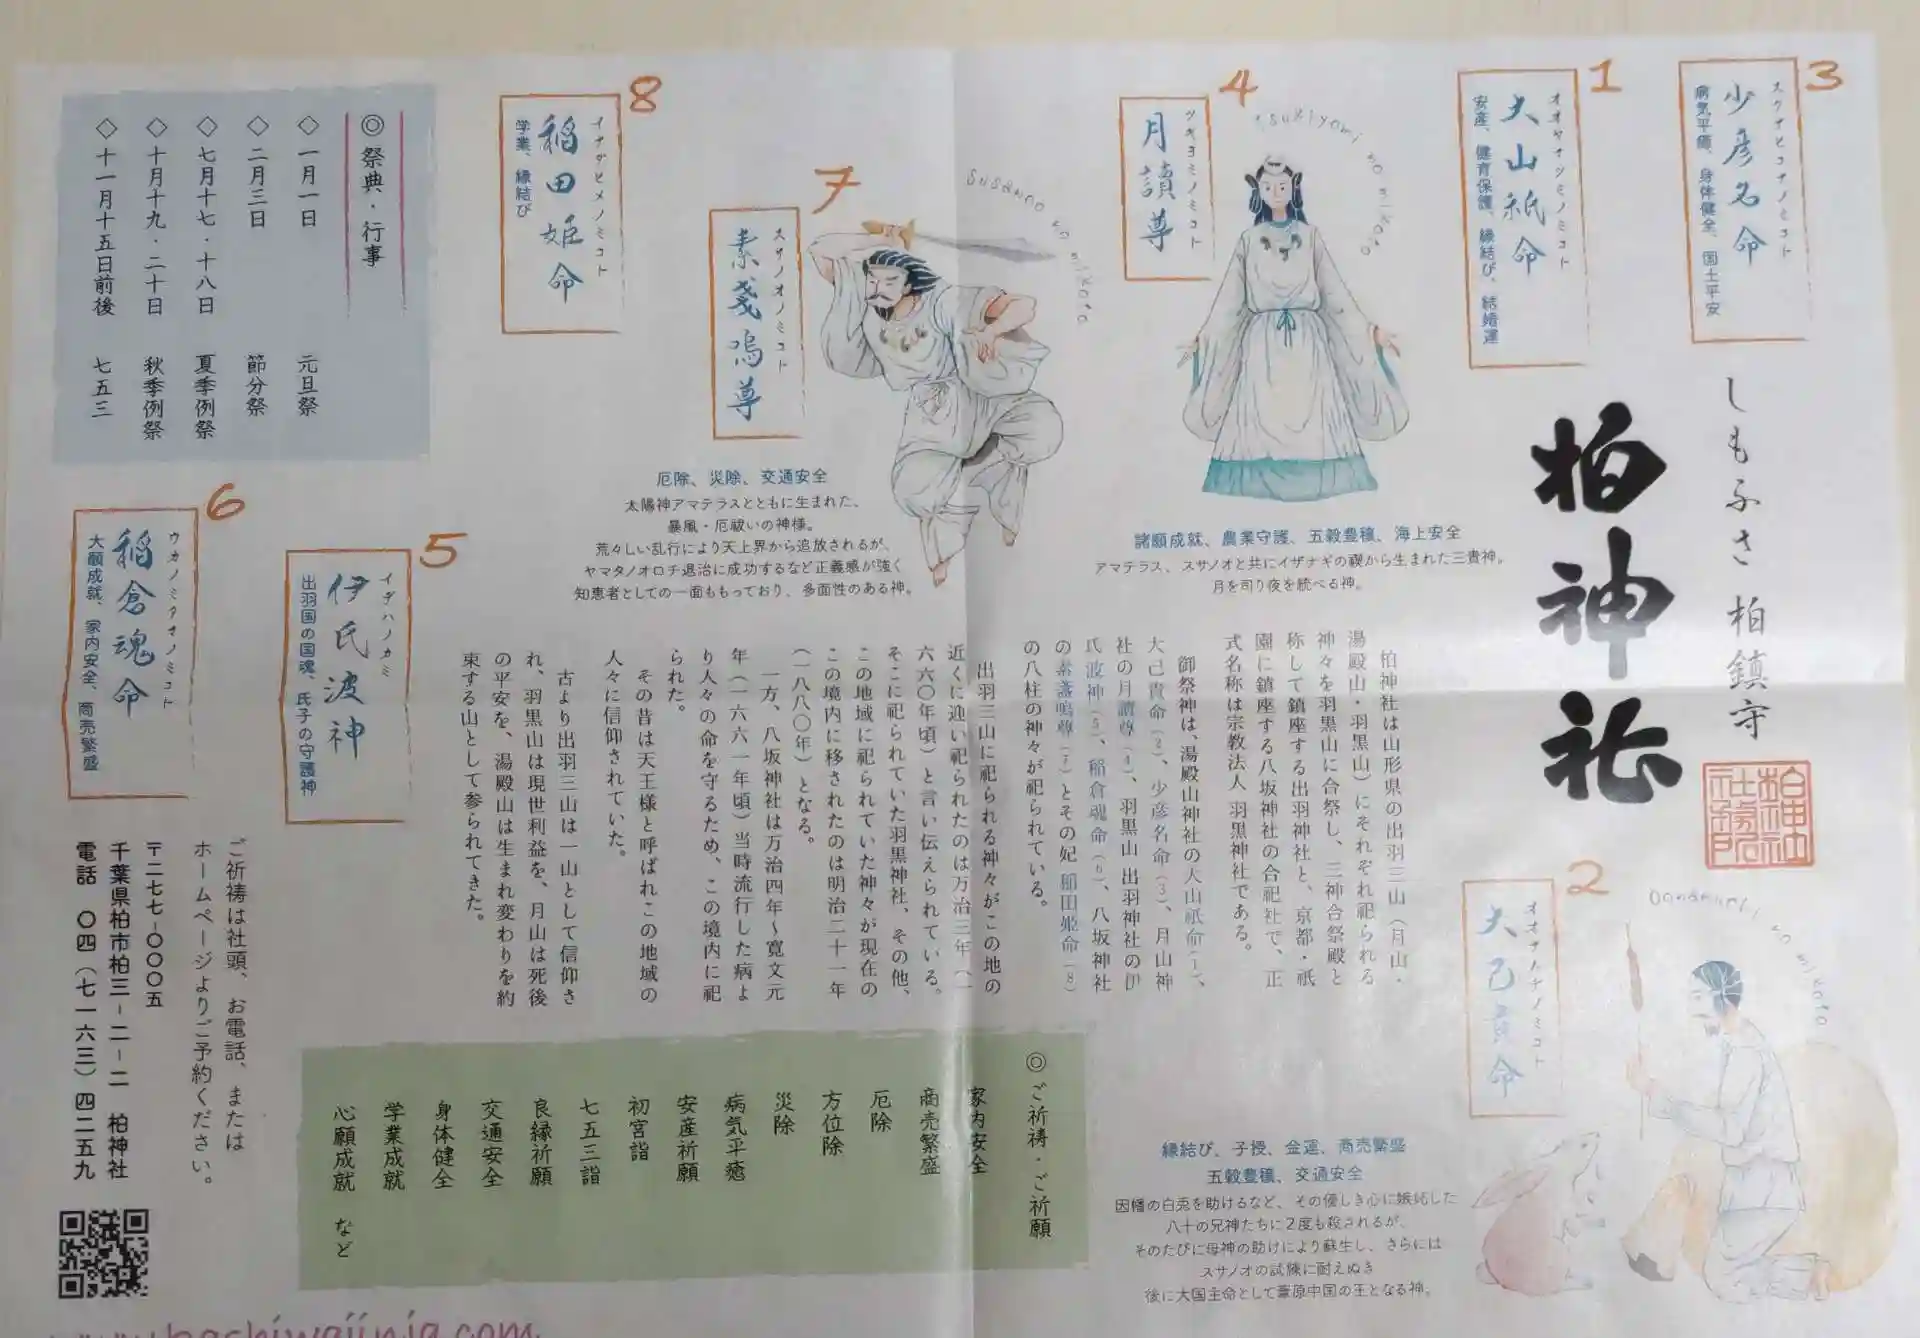 しもふさ柏鎮守
柏神社
3
スクナヒコナノミコト
少彦名命
病気平癒、身体健全、国土平安
1
オオヤマツミノミコト
大山祇命
安産、健育保護、縁結び、結婚運
2
オオナムチノミコト
大己貴命
縁結び、子授、金運、商売繁盛
五穀豊穣、交通安全
因幡の白兎を助けるなど、その優しき心に嫉妬した
八十の兄神たちに2度も殺されるが、
そのたびに母神の助けにより蘇生し、さらには
スサノオの試練に耐えぬき
後に大国主命として葦原中国の王となる神。
4
ツキヨミノミコト
月讀尊
Tsukiyomi no mikoto
諸願成就、農業守護、五穀豊穣、海上安全
アマテラス、スサノオと共にイザナギの禊から生まれた三貴神。
月を司り夜を統べる神。
7
スサノオノミコト
素戔嗚尊
Susanoo no mikoto
厄除、災除、交通安全
太陽神アマテラスとともに生まれた、
暴風・厄祓いの神様。
荒々しい乱行により天上界から追放されるが、
ヤマタノオロチ退治に成功するなど正義感が強く
知恵者としての一面ももっており、多面性のある神。
8
イナダヒメノミコト
稲田姫命
学業、縁結び
◎祭典・行事
◇一月一日 元旦祭
◇二月三日 節分祭
◇七月十七・十八日 夏季例祭
◇十月十九・二十日 秋季例祭
◇十一月十五日前後 七五三
5
イデハノカミ
伊氏波神
出羽国の国魂、氏子の守護神
6
ウカノミタマノミコト
稲倉魂命
大願成就、家内安全、商売繁盛
柏神社は山形県の出羽三山（月山・
湯殿山・羽黒山）にそれぞれ祀られる
神々を羽黒山に合祭し、三神合祭殿と
称して鎮座する出羽神社と、京都・祇
園に鎮座する八坂神社の合祀社で、正
式名称は宗教法人 羽黒神社である。
御祭神は、湯殿山神社の大山祇命（1）、
大己貴命（2）、少彦名命（3）、月山神
社の月讀尊（4）、羽黒山 出羽神社の伊
氏波神（5）、稲倉魂命（6）、八坂神社
の素盞嗚尊（7）とその妃 稲田姫命（8）
の八柱の神々が祀られている。
出羽三山に祀られる神々がこの地の
近くに迎い祀られたのは万治三年（一
六六〇年頃）と言い伝えられている。
そこに祀られていた羽黒神社、その他、
この地域に祀られていた神々が現在の
この境内に移されたのは明治二十一年
（一八八〇年）となる。
一方、八坂神社は万治四年～寛文元
年（一六六一年頃）当時流行した病よ
り人々の命を守るため、この境内に祀
られた。
その昔は天王様と呼ばれこの地域の
人々に信仰されていた。
古より出羽三山は一山として信仰さ
れ、羽黒山は現世利益を、月山は死後
の平安を、湯殿山は生まれ変わりを約
束する山として参られてきた。
◎ご祈祷・ご祈願
家内安全
商売繁盛
厄除
方位除
災除
病気平癒
安産祈願
初宮詣
七五三詣
良縁祈願
交通安全
身体健全
学業成就
心願成就 など
ご祈祷は社頭、お電話、または
ホームページよりご予約ください。
〒二七七-〇〇〇五
千葉県柏市柏三-二-二 柏神社
電話 〇四（七一六三）四二五九